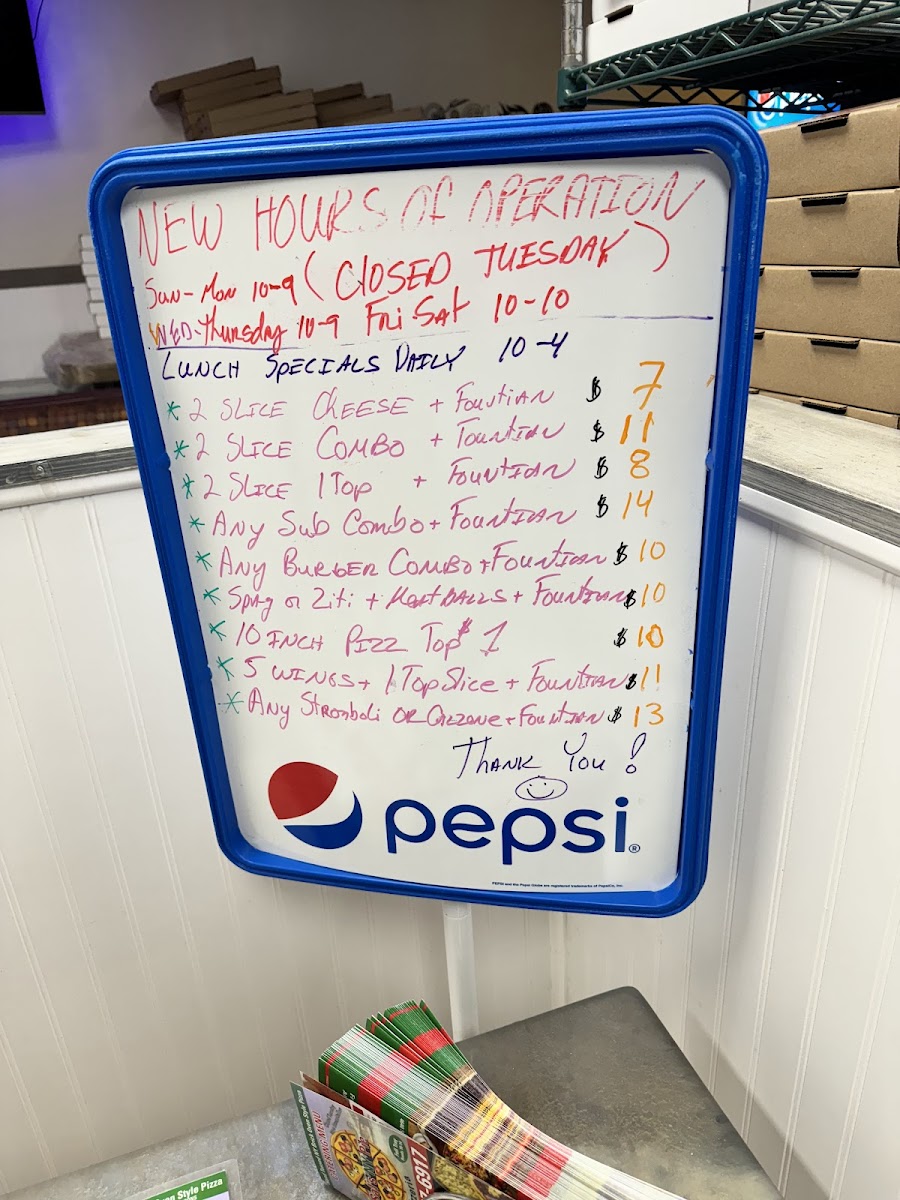 NEW HOURS OF OPERATION
SUN-MON 10-9 (CLOSED TUESDAY)
WED-Thursday 10-9 Fri-Sat 10-10
LUNCH SPECIALS DAILY 10-4
* 2 SLICE CHEESE + Fountian $ 7
* 2 SLICE COMBO + Fountian $ 11
* 2 SLICE 1 TOP + Fountian $ 8
* ANY Sub Combo + Fountian $ 14
* ANY BURGER COMBO + Fountian $ 10
* Spag or Ziti + MeatBALLS + Fountian $ 10
* 10 INCH PIZZ TOP $ 1 $ 10
* 5 WINGS + 1 Top Slice + Fountian $ 11
* ANY Stromboli OR Calzone + Fountian $ 13
THANK YOU!
pepsi®
PEPSI and the Pepsi Globe are registered trademarks of PepsiCo, Inc.
CATERING MENU
Style Pizza